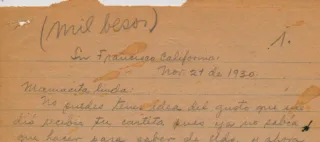 (mil besos)
1.
Sn Francisco California.
Nov. 24 de 1930.
Mamacita linda:
No puedes tener idea del gusto que me
dió recibir tu cartita pues ya no sabía
que hacer para saber de Uds, y ahora